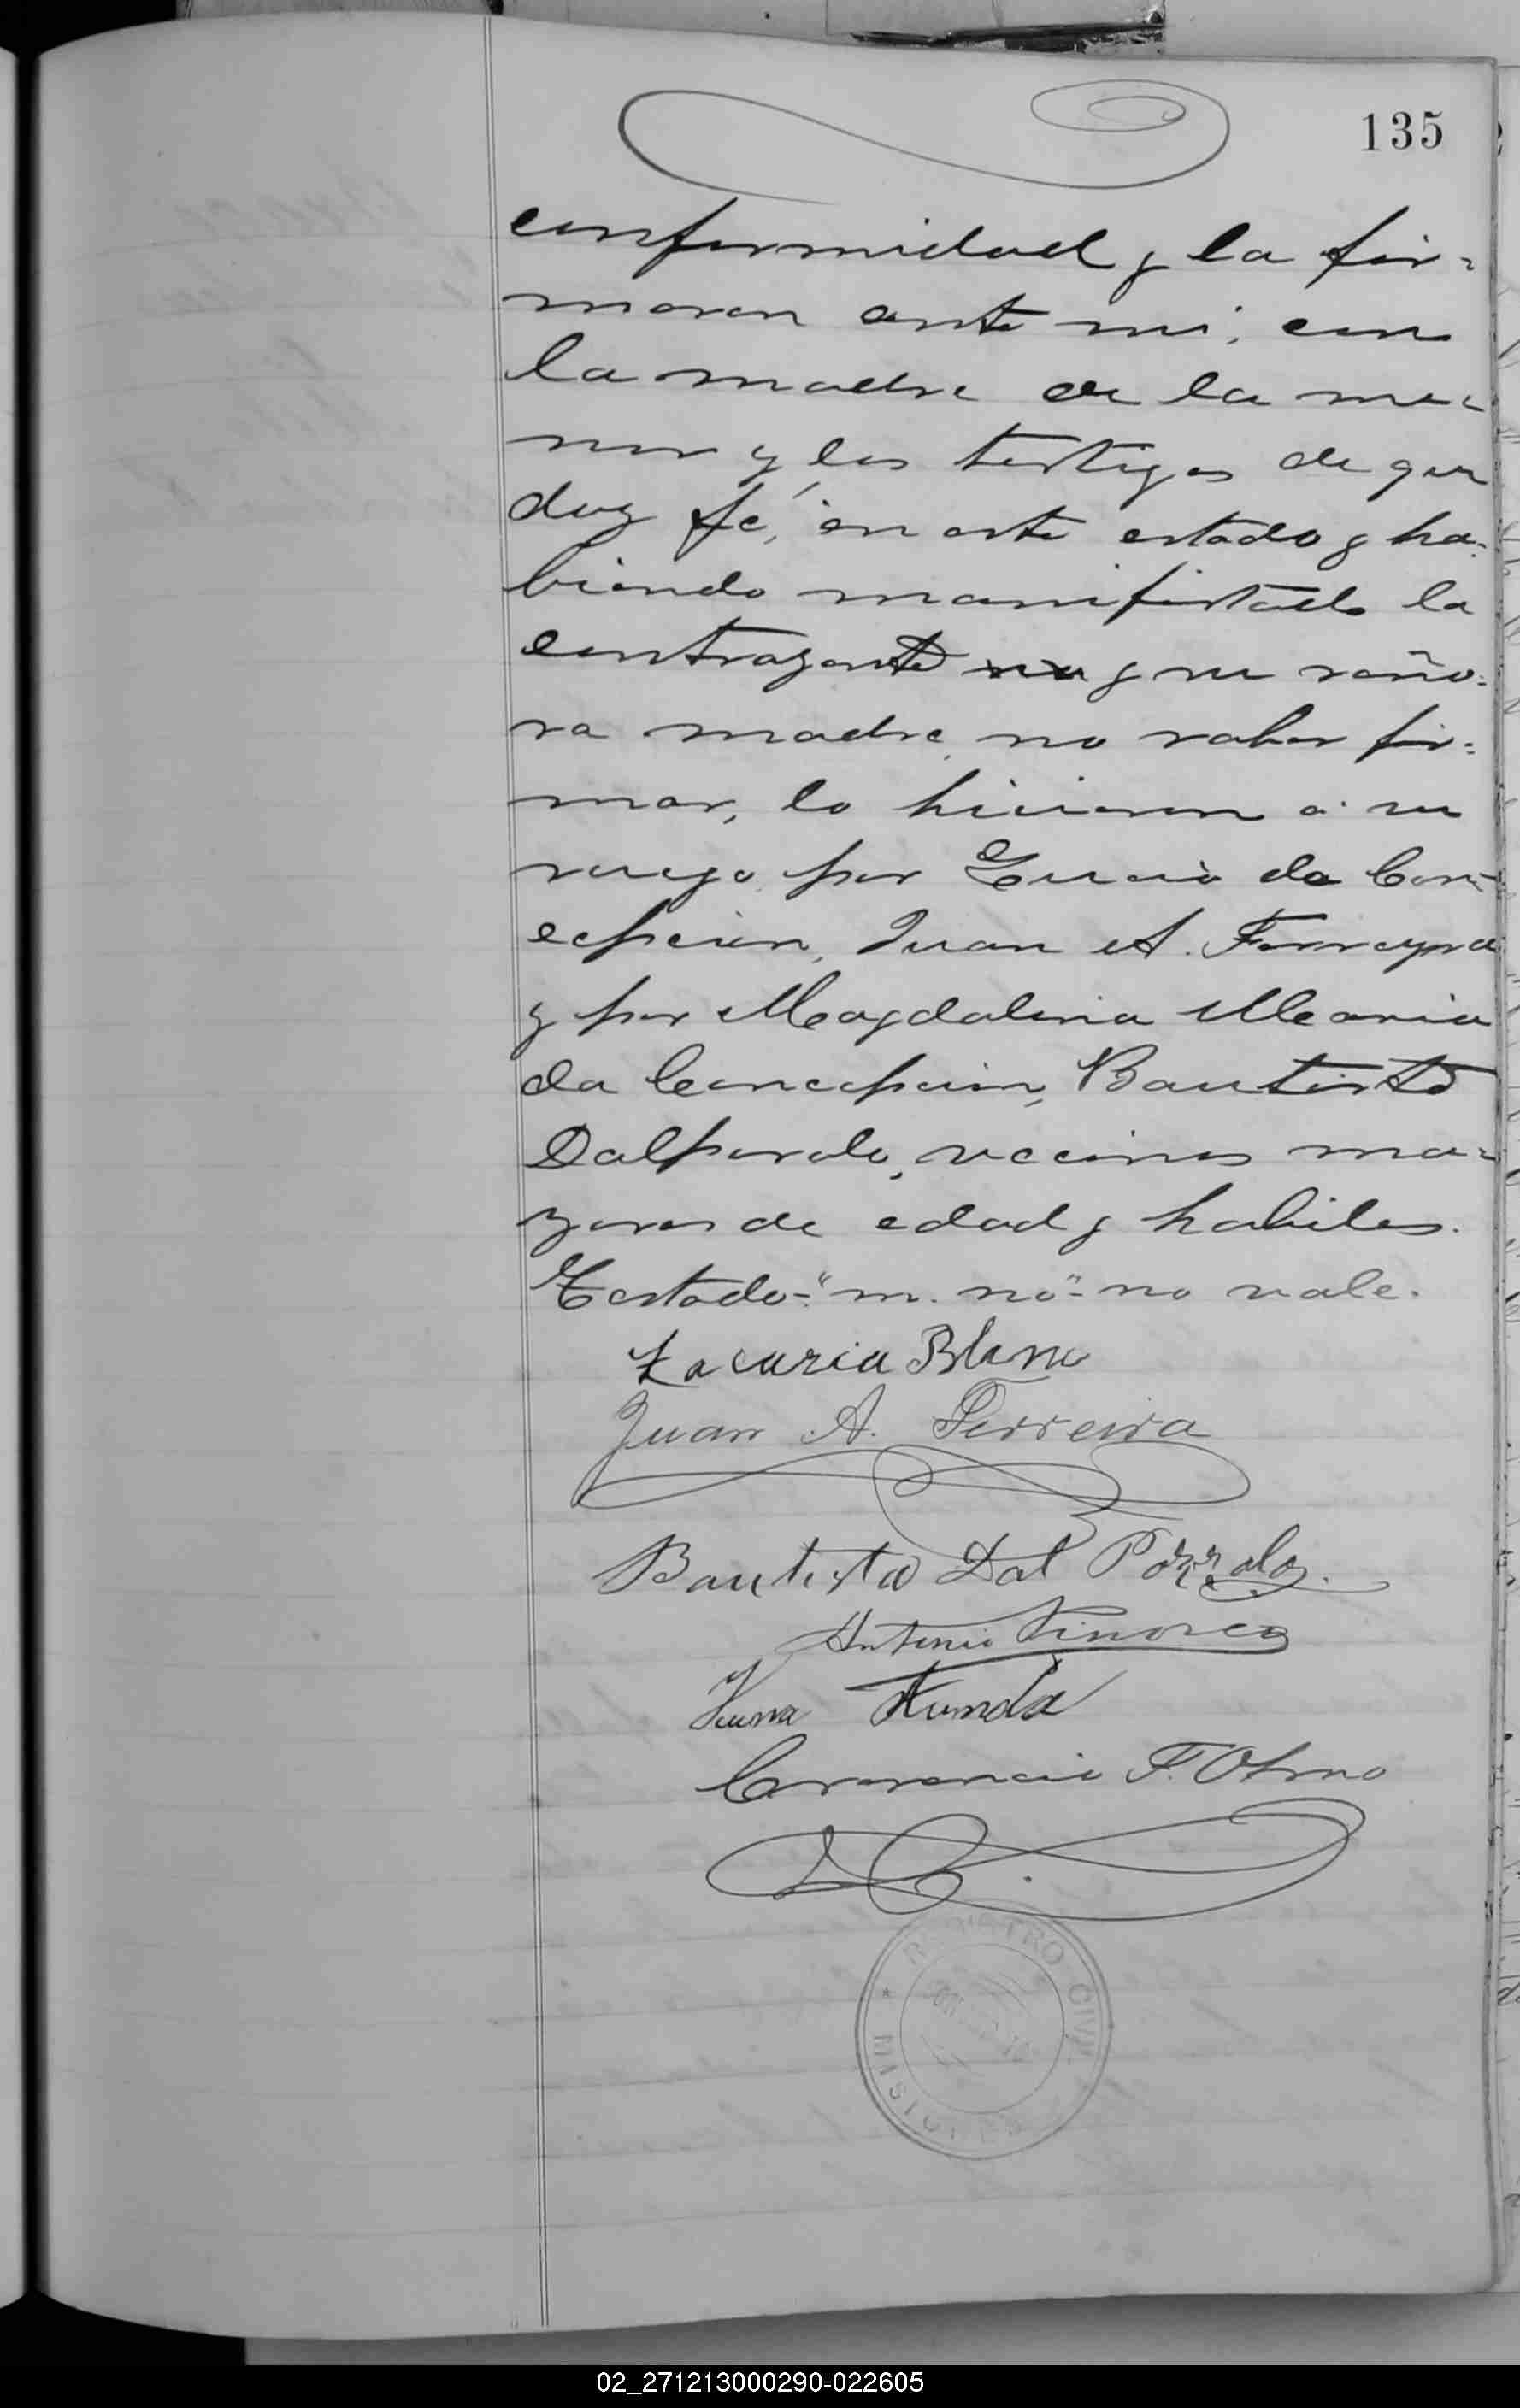 135
conformidad y la fir=
maron ante mi, con
la madre de la me=
nor y los testigos de que
doy fé, en este estado y ha=
biendo manifestado la
contrayente no y su seño=
ra madre no saber fir=
mar, lo hicieron a su
ruego por Lucia da Con=
cepcion, Juan A. Ferreyra
y por Magdalena Maria
da Concepcion, Bautista
Dalporalo, vecinos ma=
yores de edad y habiles.
Testado-"m. no"- no vale.
Zacaria Blanc
Juan A. Ferreira
Bautista Dal
Antonio
Juna
F. Olmo
REGISTRO CIVIL
MISIONES
02_271213000290-022605